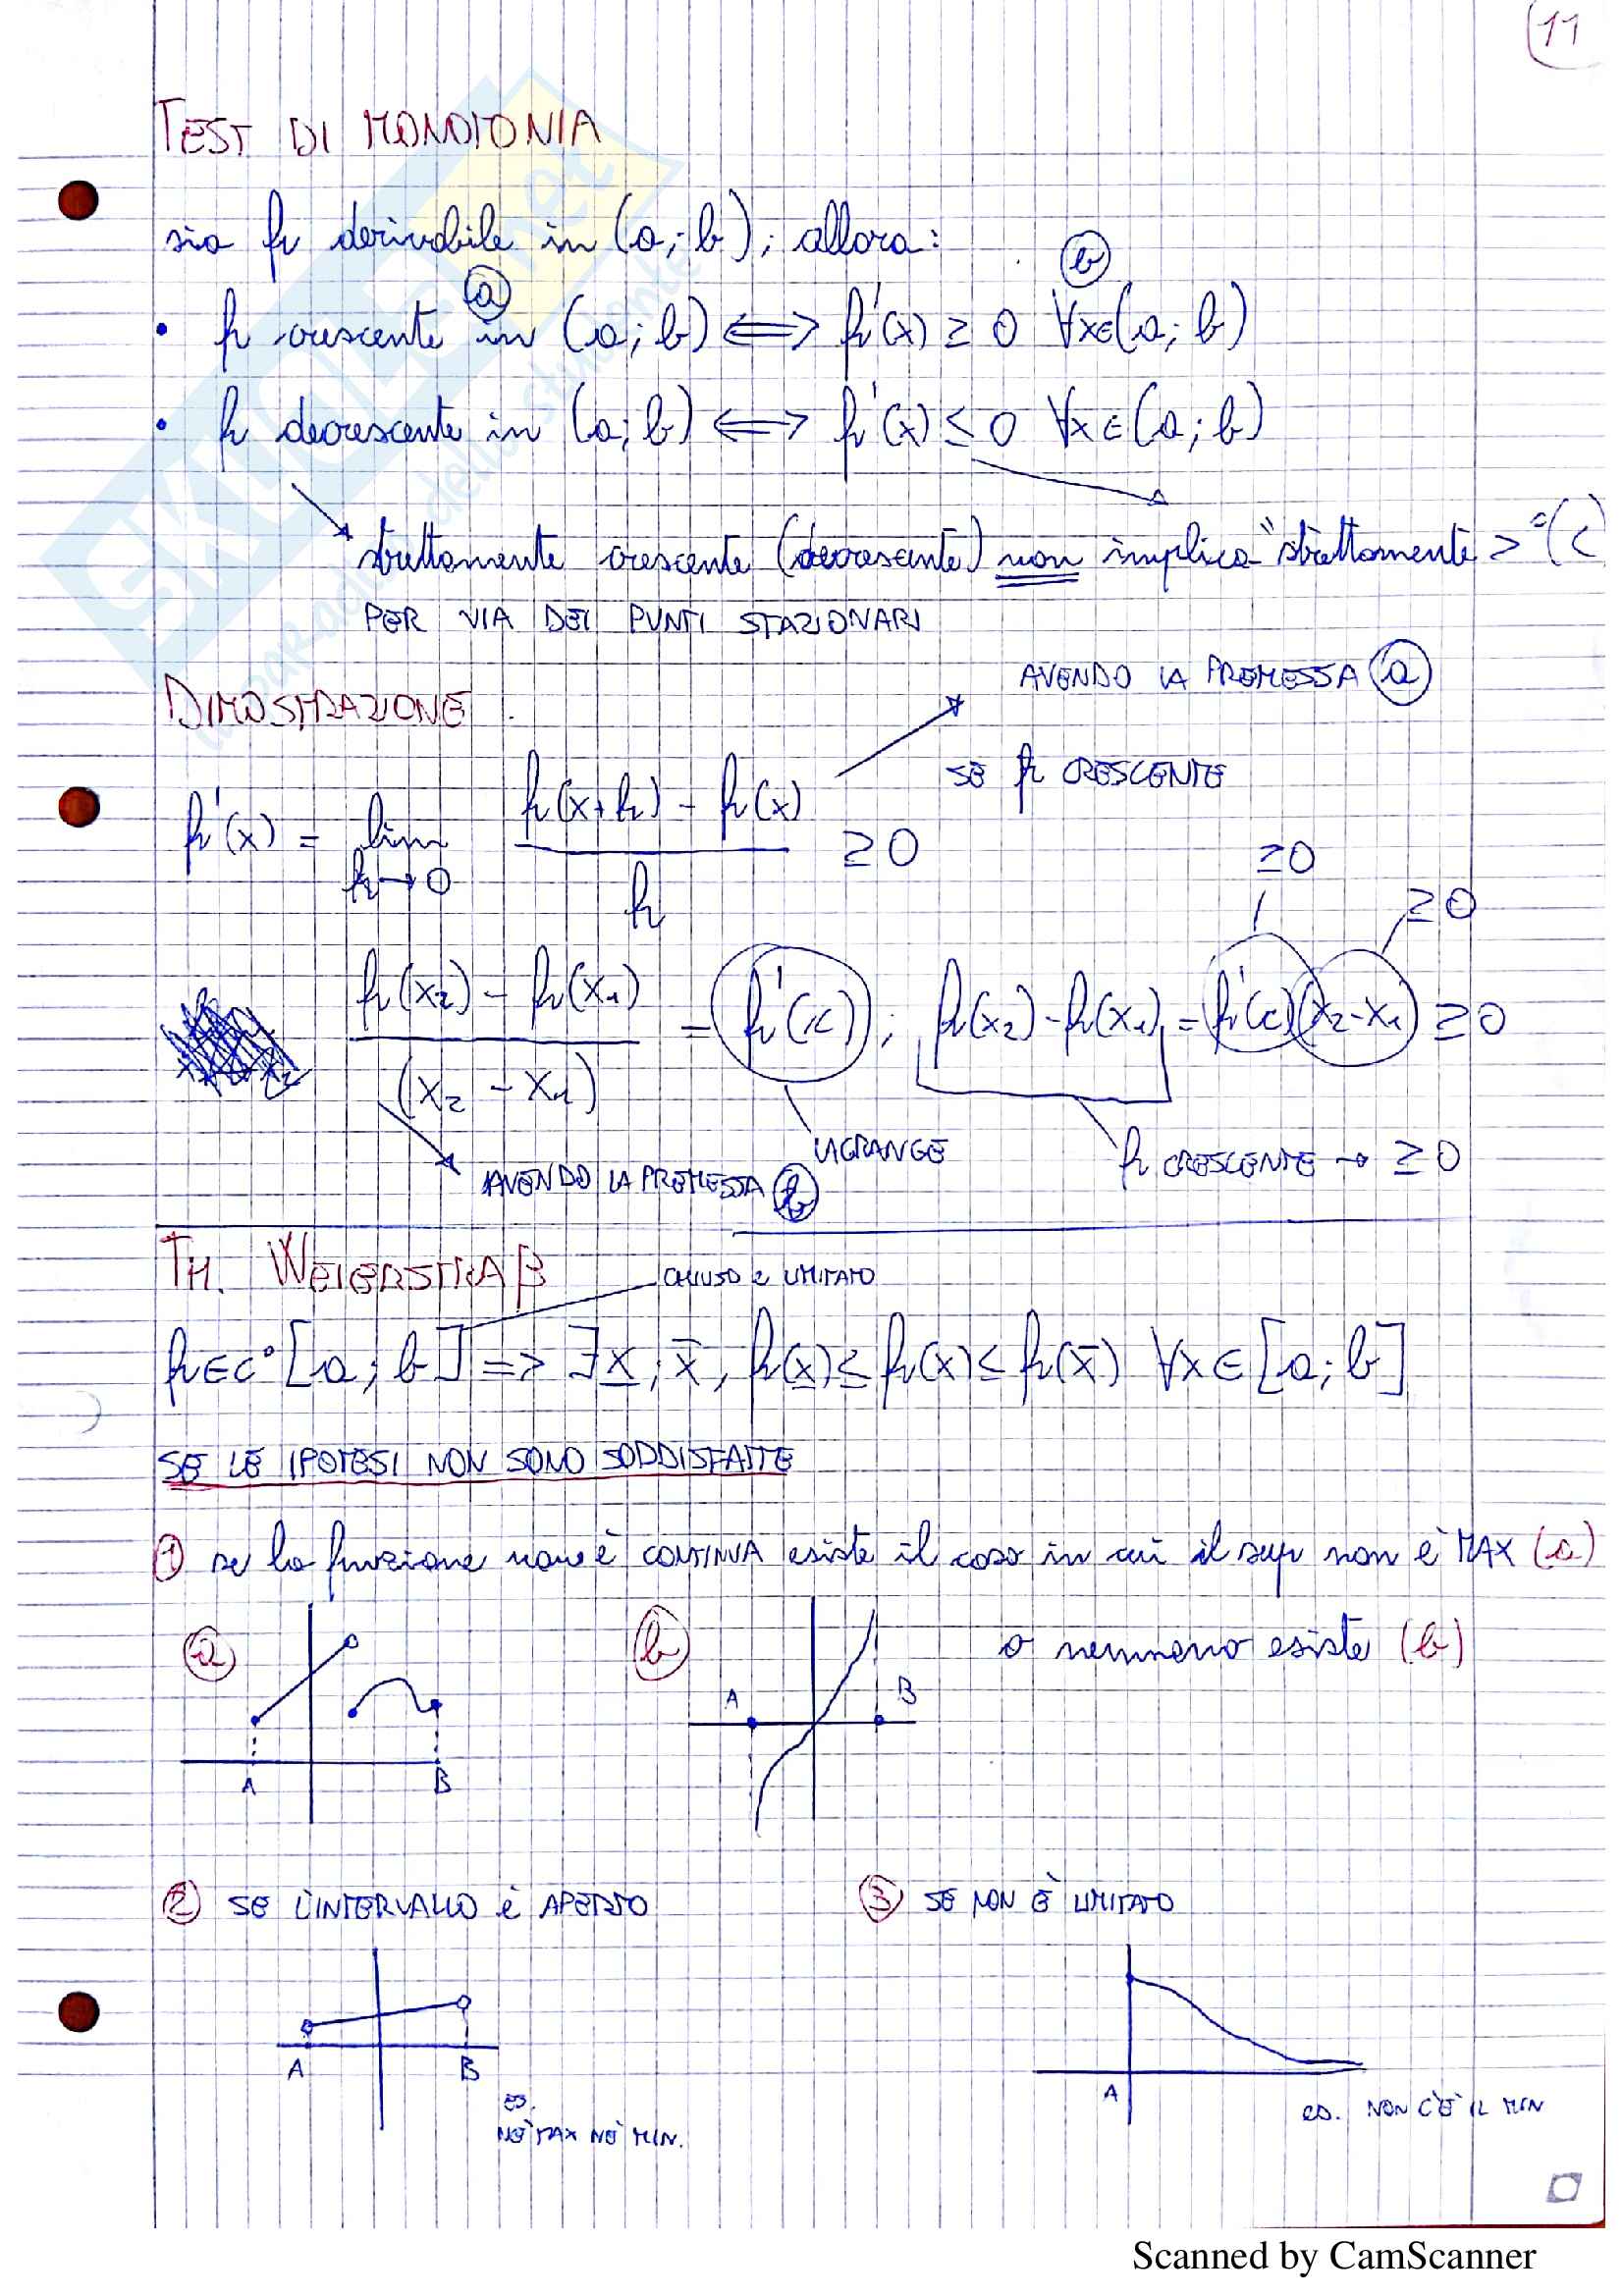 11
TEST DI MONOTONIA
sia f derivabile in (a; b); allora:
a b
• f crescente in (a; b) ⟺ f'(x) ≥ 0 ∀x∈(a; b)
• f decrescente in (a; b) ⟺ f'(x) ≤ 0 ∀x∈(a; b)
strettamente crescente (decrescente) non implica "strettamente >" (<
PER VIA DEI PUNTI STAZIONARI
DIMOSTRAZIONE
AVENDO LA PREMESSA a
SE f CRESCENTE
f'(x) = lim h→0 f(x+h) - f(x) / h ≥ 0
≥0 ≥0
f(x₂) - f(x₁) / (x₂ - x₁) = f'(c) ; f(x₂) - f(x₁) = f'(c)(x₂-x₁) ≥ 0
LAGRANGE
f CRESCENTE → ≥0
AVENDO LA PREMESSA b
TH. WEIERSTRAβ
CHIUSO e LIMITATO
f∈C° [a; b] => ∃ x̲, x̄, f(x̲) ≤ f(x) ≤ f(x̄) ∀x∈[a; b]
SE LE IPOTESI NON SONO SODDISFATTE
1 se la funzione non è CONTINUA esiste il caso in cui il sup non è MAX (a)
o nemmeno esiste (b)
a
A B
b
A B
2 SE L'INTERVALLO è APERTO
3 SE NON È LIMITATO
A B
es.
NÈ MAX NÈ MIN.
A
es. NON C'È IL MIN
SKUOLA.net
Scanned by CamScanner